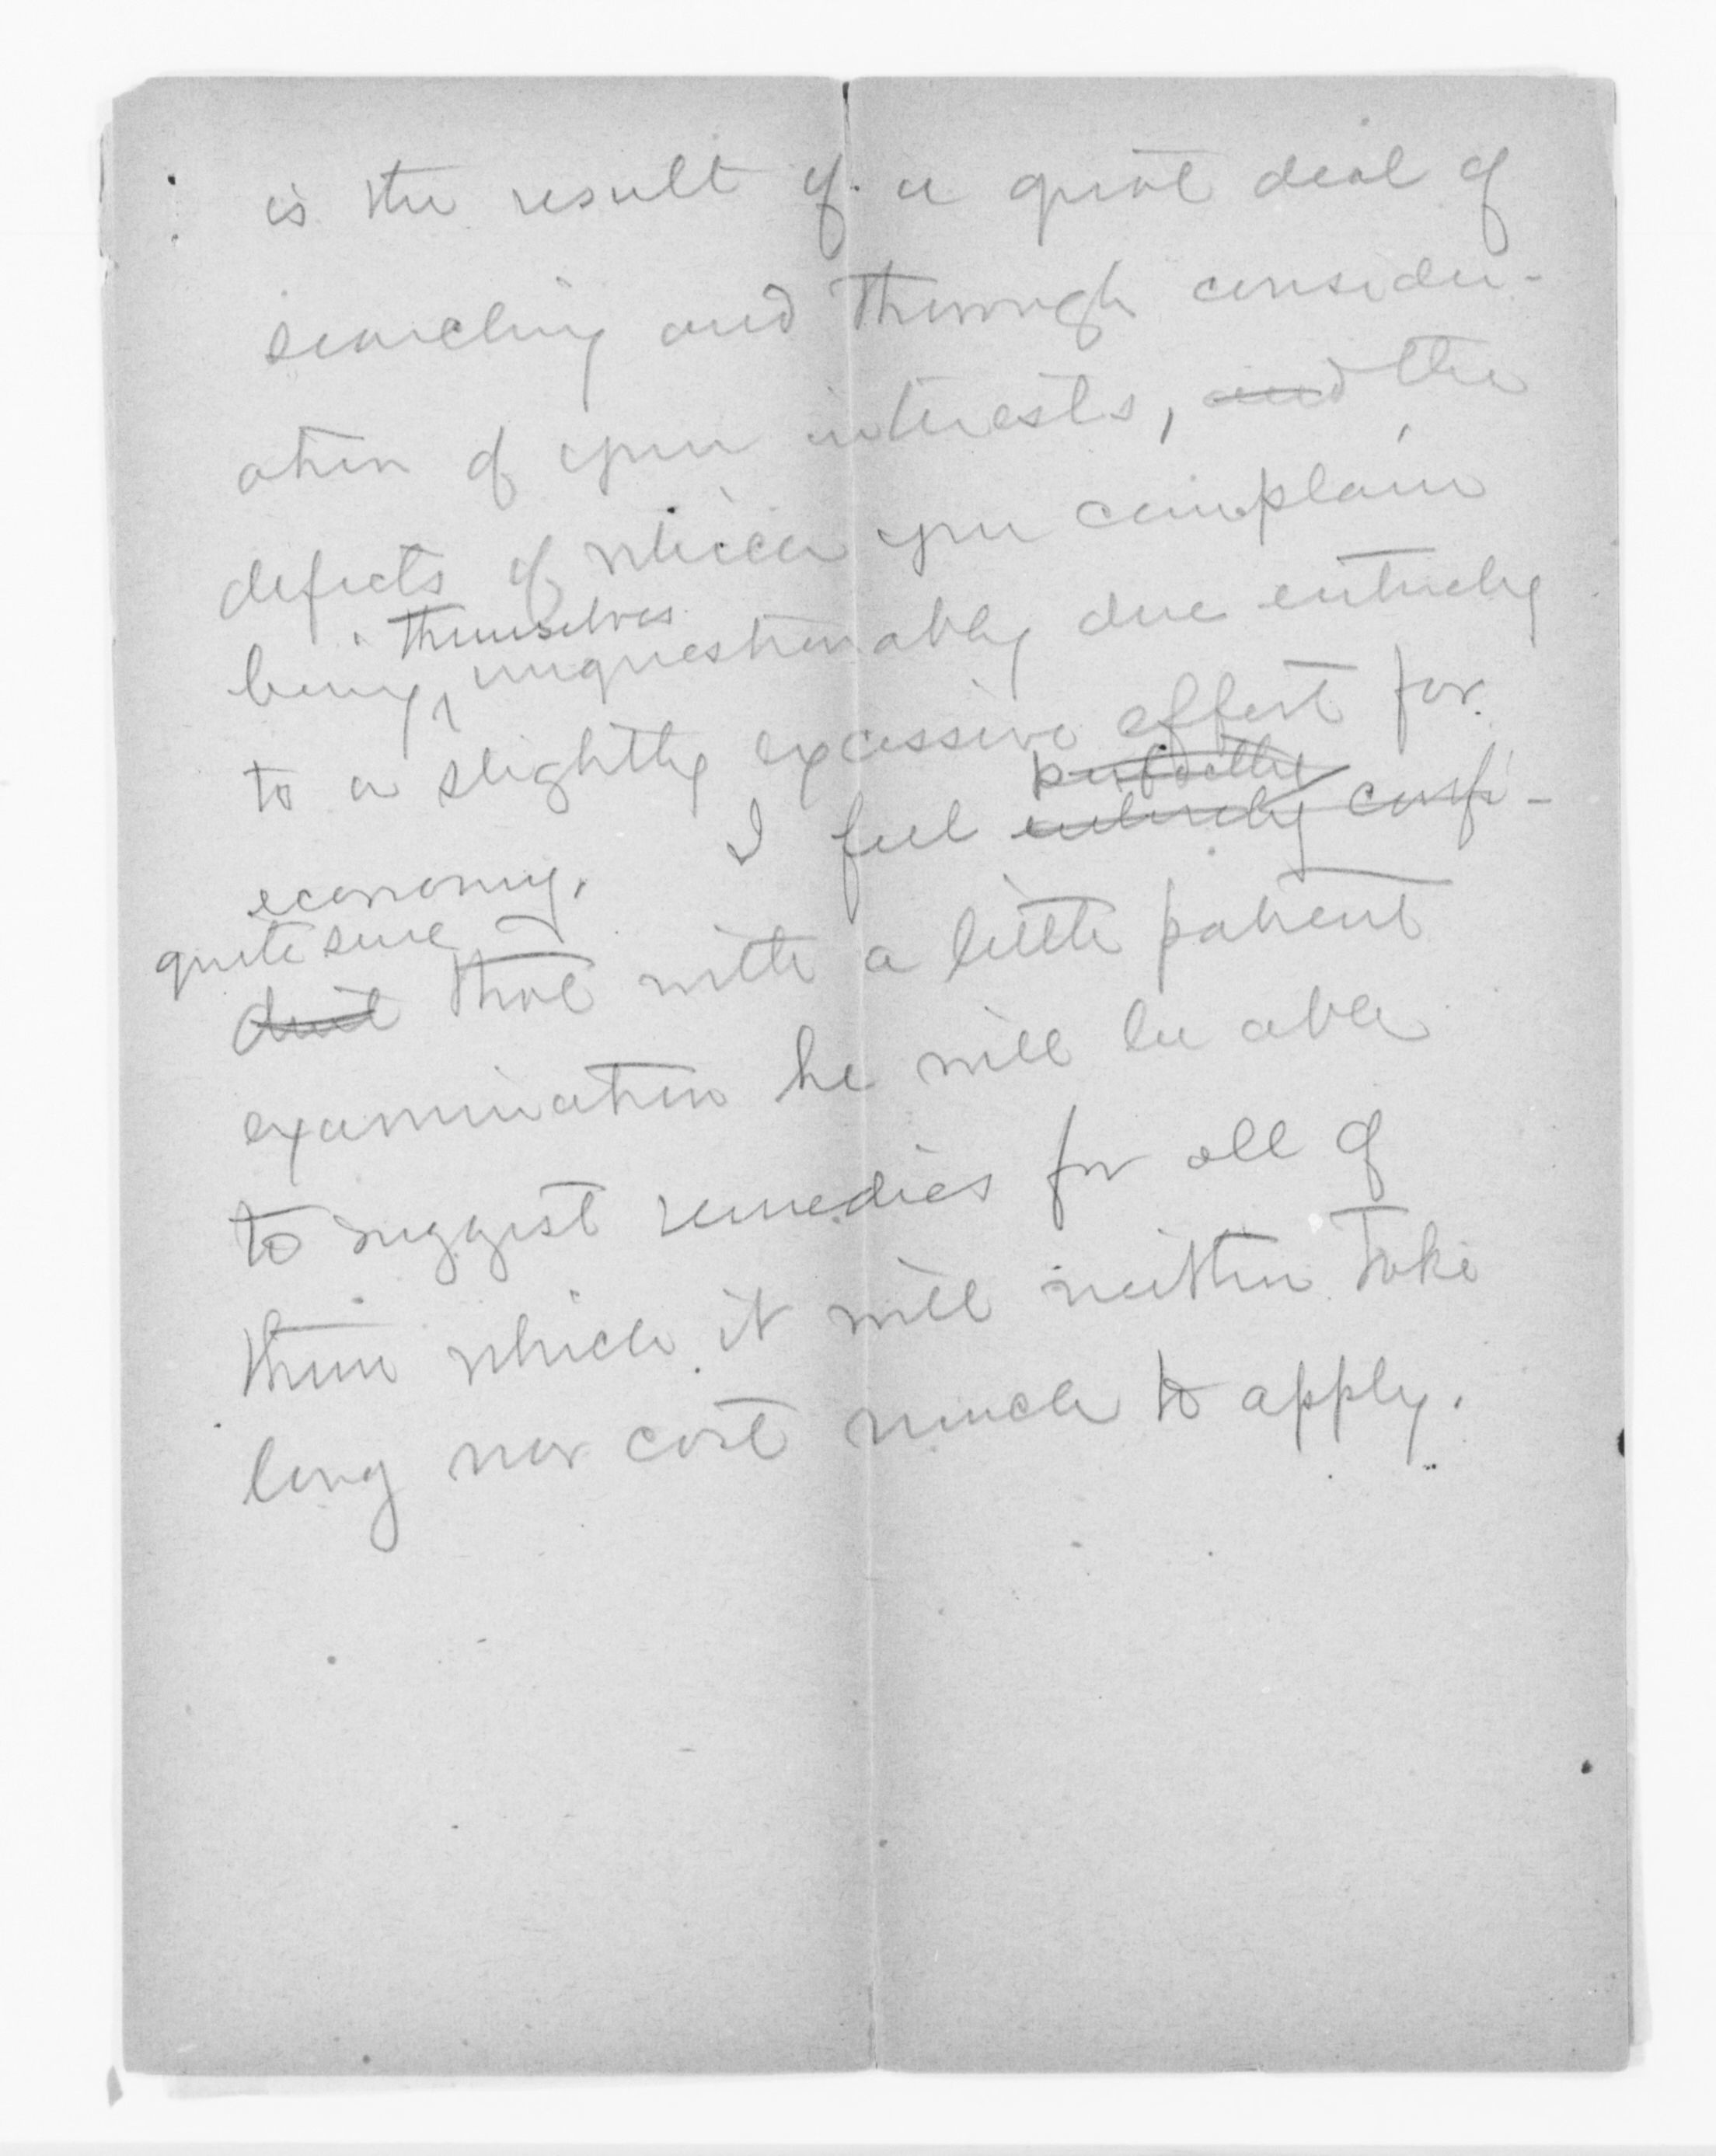 is the result of a great deal of
searching and thorough consider-
ation of your interests, and the
defects of which you complain
themselves
being unquestionably due entirely
to a slightly excessive effort for
perfectly
economy. I feel entirely confi-
quite sure
dent that with a little patient
examination he will be able
to suggest remedies for all of
them which it will neither take
long nor cost much to apply.